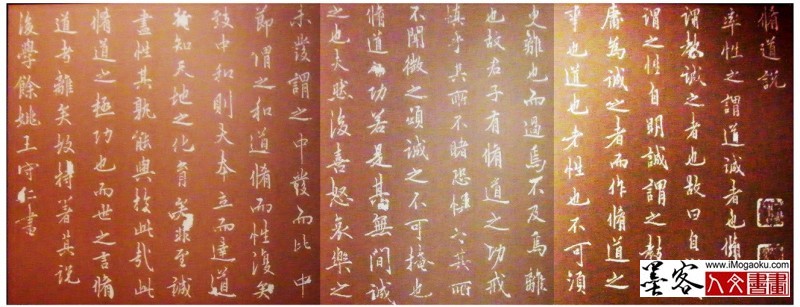 脩道說
率性之謂道誠者也脩
謂教誠之者也故曰自
謂之性自明誠謂之教
庸為誠之者而作脩道之
事也道也者性也不可須
臾離也而過焉不及焉離
也故君子有脩道之功戒
慎乎其所不睹恐懼乎其所
不聞微之顯誠之不可揜也
脩道之功若是其無間誠
之也夫然後喜怒哀樂之
未發謂之中發而皆中
節謂之和道脩而性復矣
致中和則大本立而達道
行知天地之化育矣非至誠
盡性其孰能與於此哉此
脩道之極功也而世之言脩
道者離矣故特著其說
後學餘姚王守仁書
墨客
www.iMogaoku.com